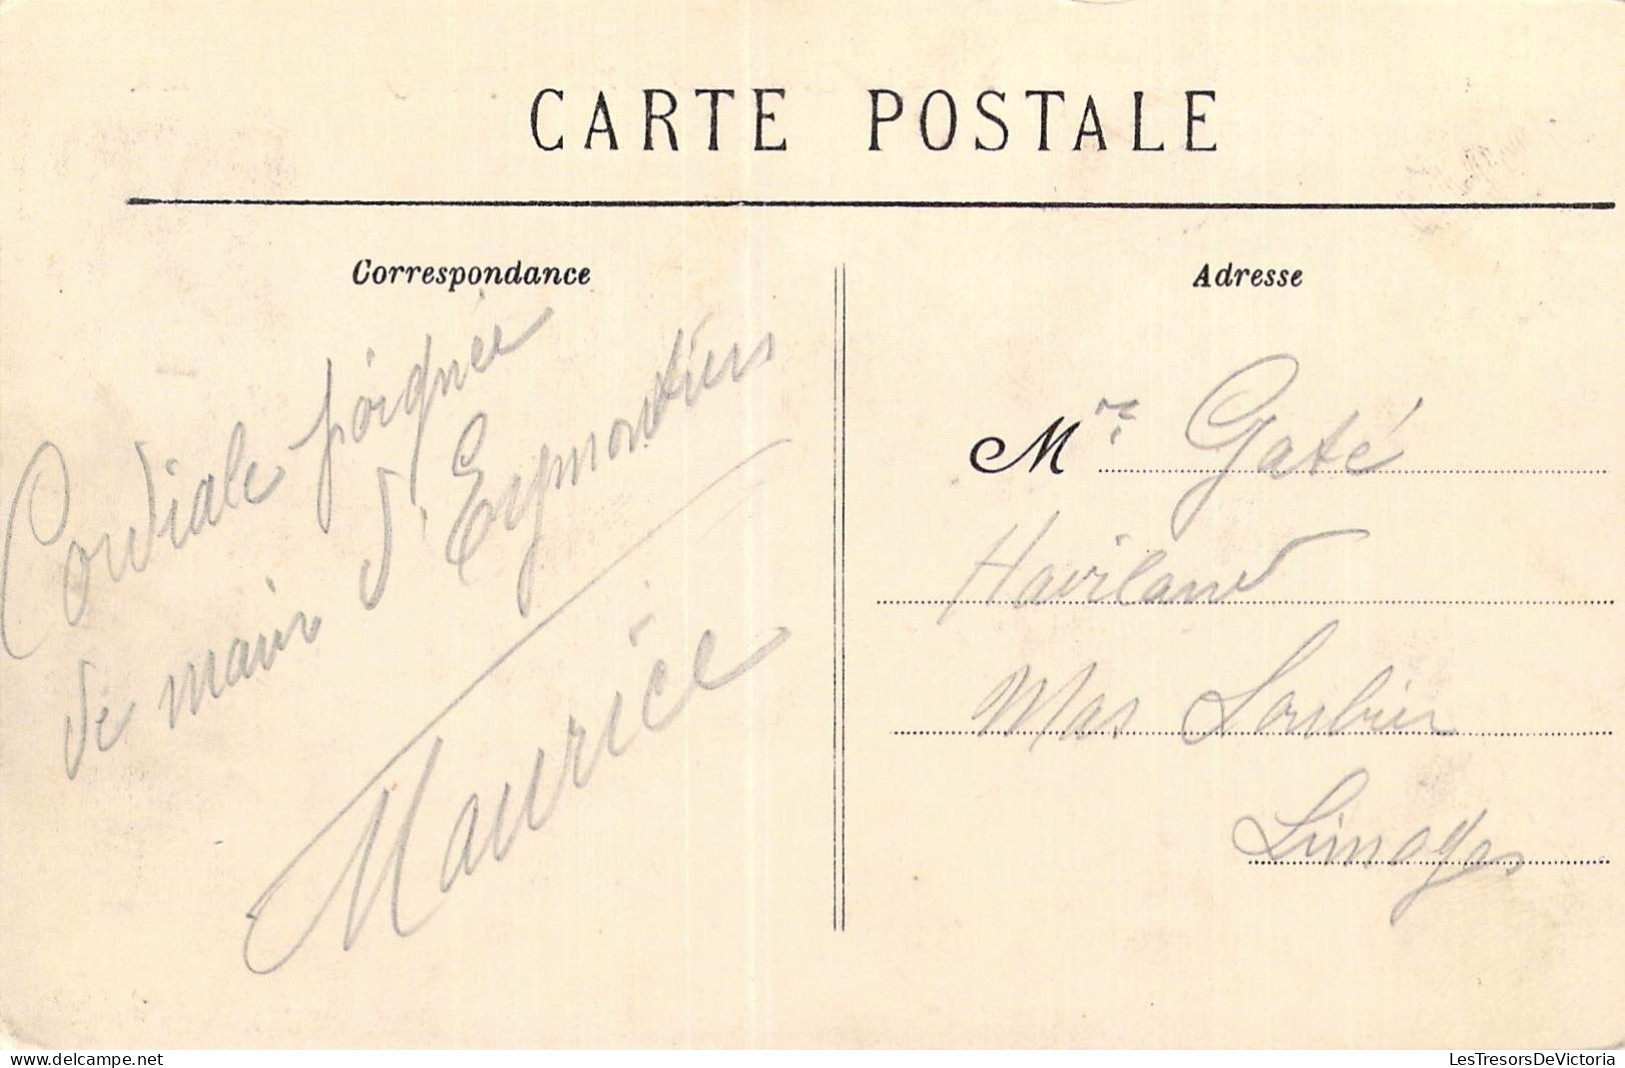 CARTE POSTALE
Correspondance
Cordiale poignée
de main d'Eymoutiers
Maurice
Adresse
Mr Gaté
Haviland
Mas Loubier
Limoges
delcampe.net
LesTresorsDeVictoria